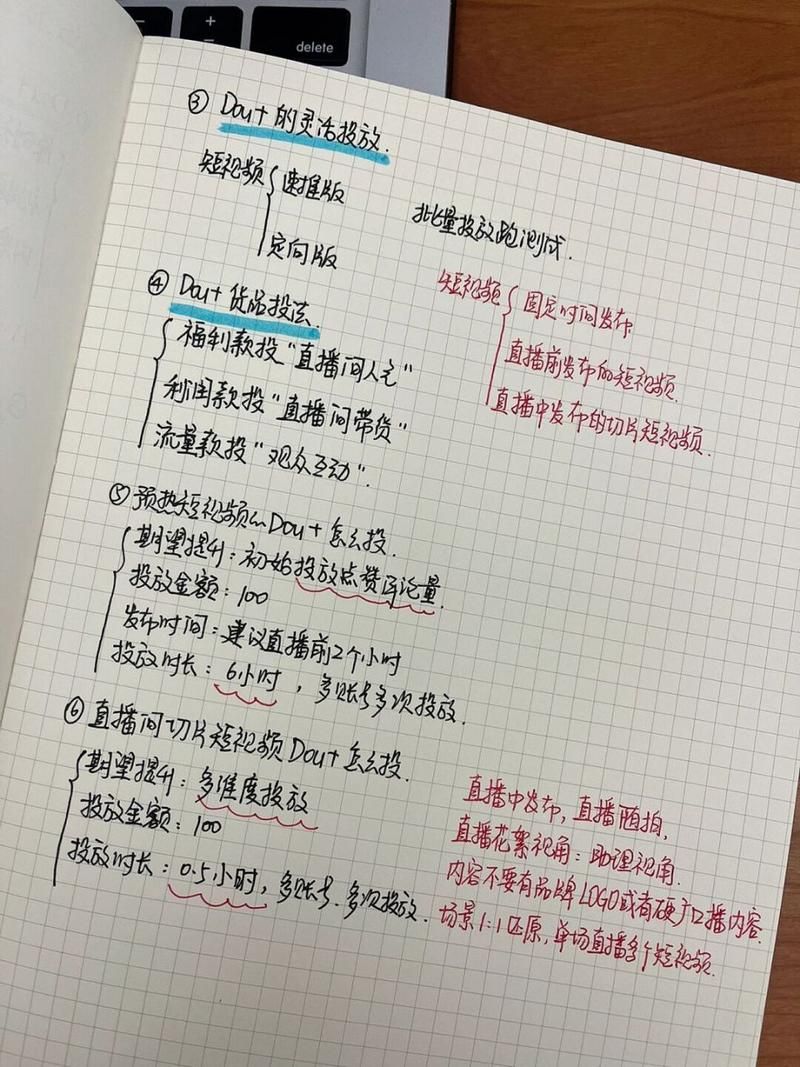 delete
③ Dou+的灵活投放.
短视频 速推版
定向版
批量投放跑测试.
短视频 固定时间发布
直播前发布的短视频.
直播中发布的切片短视频.
④ Dou+货品投法.
福利款投“直播间人气”
利润款投“直播间带货”
流量款投“观众互动”.
⑤ 预热短视频的Dou+怎么投.
期望提升：初始投放点赞评论量.
投放金额：100
发布时间：建议直播前2个小时
投放时长：6小时，多账号多次投放.
⑥ 直播间切片短视频Dou+怎么投.
期望提升：多维度投放
投放金额：100
投放时长：0.5小时，多账号.多次投放.
直播中发布，直播随拍，
直播花絮视角：助理视角.
内容不要有品牌LOGO或者硬广口播内容.
场景1:1还原，单场直播多个短视频.